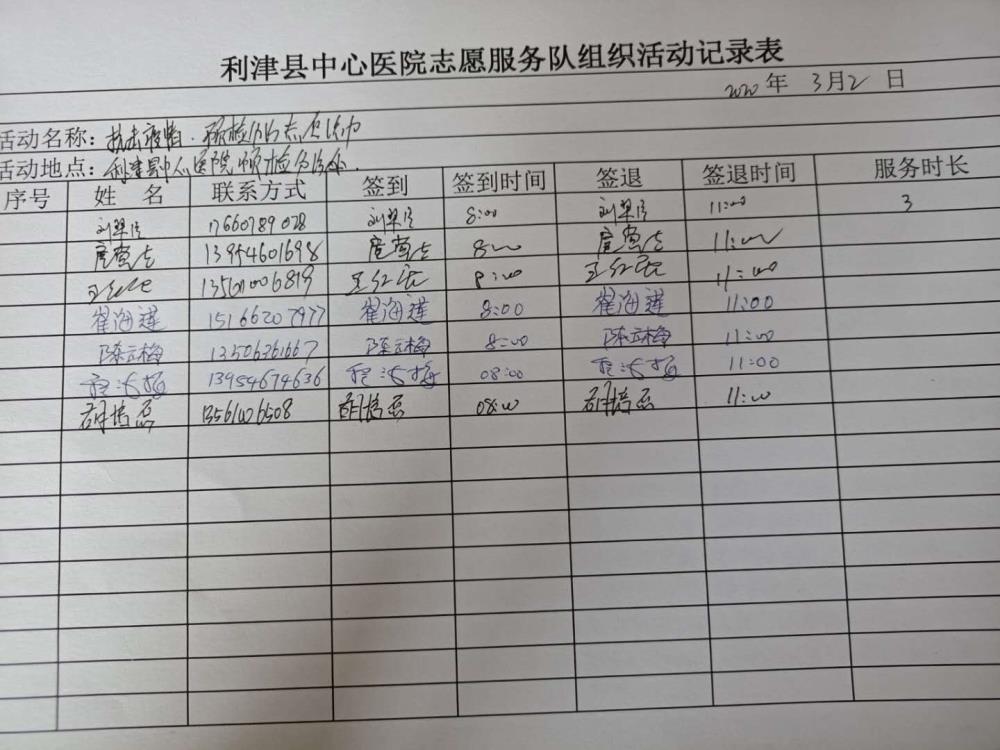 利津县中心医院志愿服务队组织活动记录表
2020年 3月2日
活动名称：抗击疫情.预检分诊志愿活动
活动地点：利津县中心医院预检分诊处.
序号 姓名 联系方式 签到 签到时间 签退 签退时间 服务时长
刘翠 17660789028 刘翠 8:00 刘翠 11:00 3
13954601698 8:00 11:00
王红 王红 8:00 王红 11:00
崔海莲 15166207977 崔海莲 8:00 崔海莲 11:00
陈云梅 13506361667 陈云梅 8:00 陈云梅 11:00
13954674636 08:00 11:00
胡培磊 13561006508 胡培磊 08:00 胡培磊 11:00